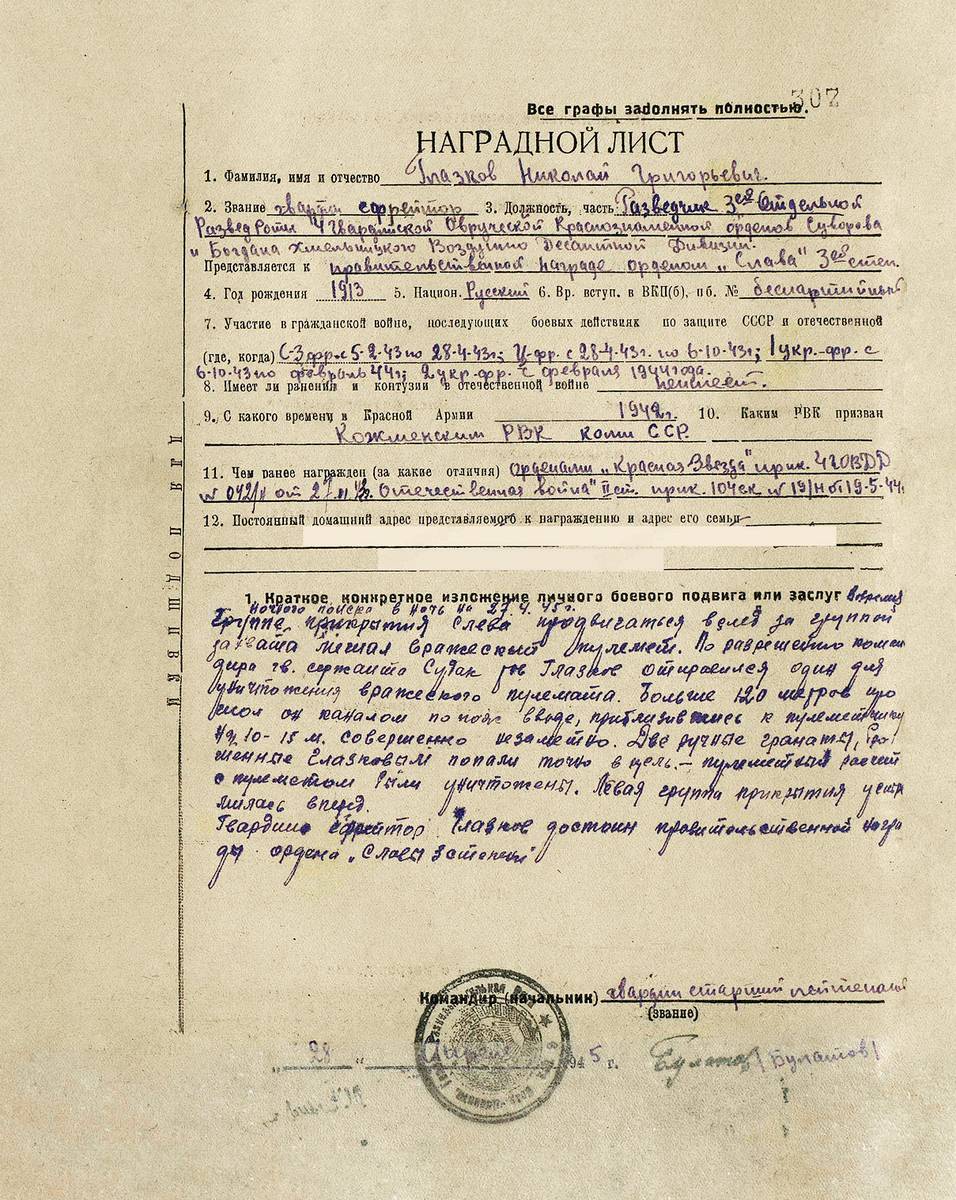 307
Все графы заполнять полностью.
НАГРАДНОЙ ЛИСТ
1. Фамилия, имя и отчество Глазков Николай Григорьевич.
2. Звание гвардии ефрейтор 3. Должность, часть Разведчик 3ей Отдельной
Развед Роты 4 Гвардейской Овручской Краснознаменной орденов Суворова
и Богдана Хмельницкого Воздушно Десантной Дивизии.
Представляется к правительственной награде орденом „Слава" 3ей степ.
4. Год рождения 1913 5. Национ. Русский 6. Вр. вступ. в ВКП(б), пб. № беспартийный
7. Участие в гражданской войне, последующих боевых действиях по защите СССР и отечественной
(где, когда) С-З фр. с 5-2-43 по 28-4-43г; Ц-фр. с 28-4-43г. по 6-10-43г; 1 укр.-фр. с
6-10-43 по февраль 44г; 2 укр. фр. с февраля 1944 года.
8. Имеет ли ранения и контузии в отечественной войне неимеет.
9. С какого времени в Красной Армии 1942г. 10. Каким РВК призван
Кожменским РВК коми ССР.
11. Чем ранее награжден (за какие отличия) орденами „Красная Звезда" прик. 4 ГВДД
N 042/н от 27 Отечественная война" II ст. прик. 104 ск N 19/н от 19-5-44г.
12. Постоянный домашний адрес представляемого к награждению и адрес его семьи
1. Краткое, конкретное изложение личного боевого подвига или заслуг Вовремя
ночного поиска в ночь на 27.4.45г.
группе прикрытия слева продвигаться вслед за группой
захвата мешал вражеский пулемет. По разрешению коман
дира гв. сержанта Судак гв Глазков отправился один для
уничтожения вражеского пулемета. Больше 120 метров про
шол он каналом по пояс вводе, приблизившись к пулеметчику
на 10-15 м. совершенно незаметно. Две ручные гранаты, бро
шенные Глазковым попали точно в цель. – пулеметный расчет
с пулеметом были уничтожены. Левая группа прикрытия устре
милась вперед.
Гвардии ефрейтор Глазков достоин правительственной награ
ды ордена „Славы 3 степени"
Командир (начальник) гвардии старший лейтенант
(звание)
„ 28 " апреля 1945 г. Булатов /Булатов/
ДЛЯ ПОДШИВКИ